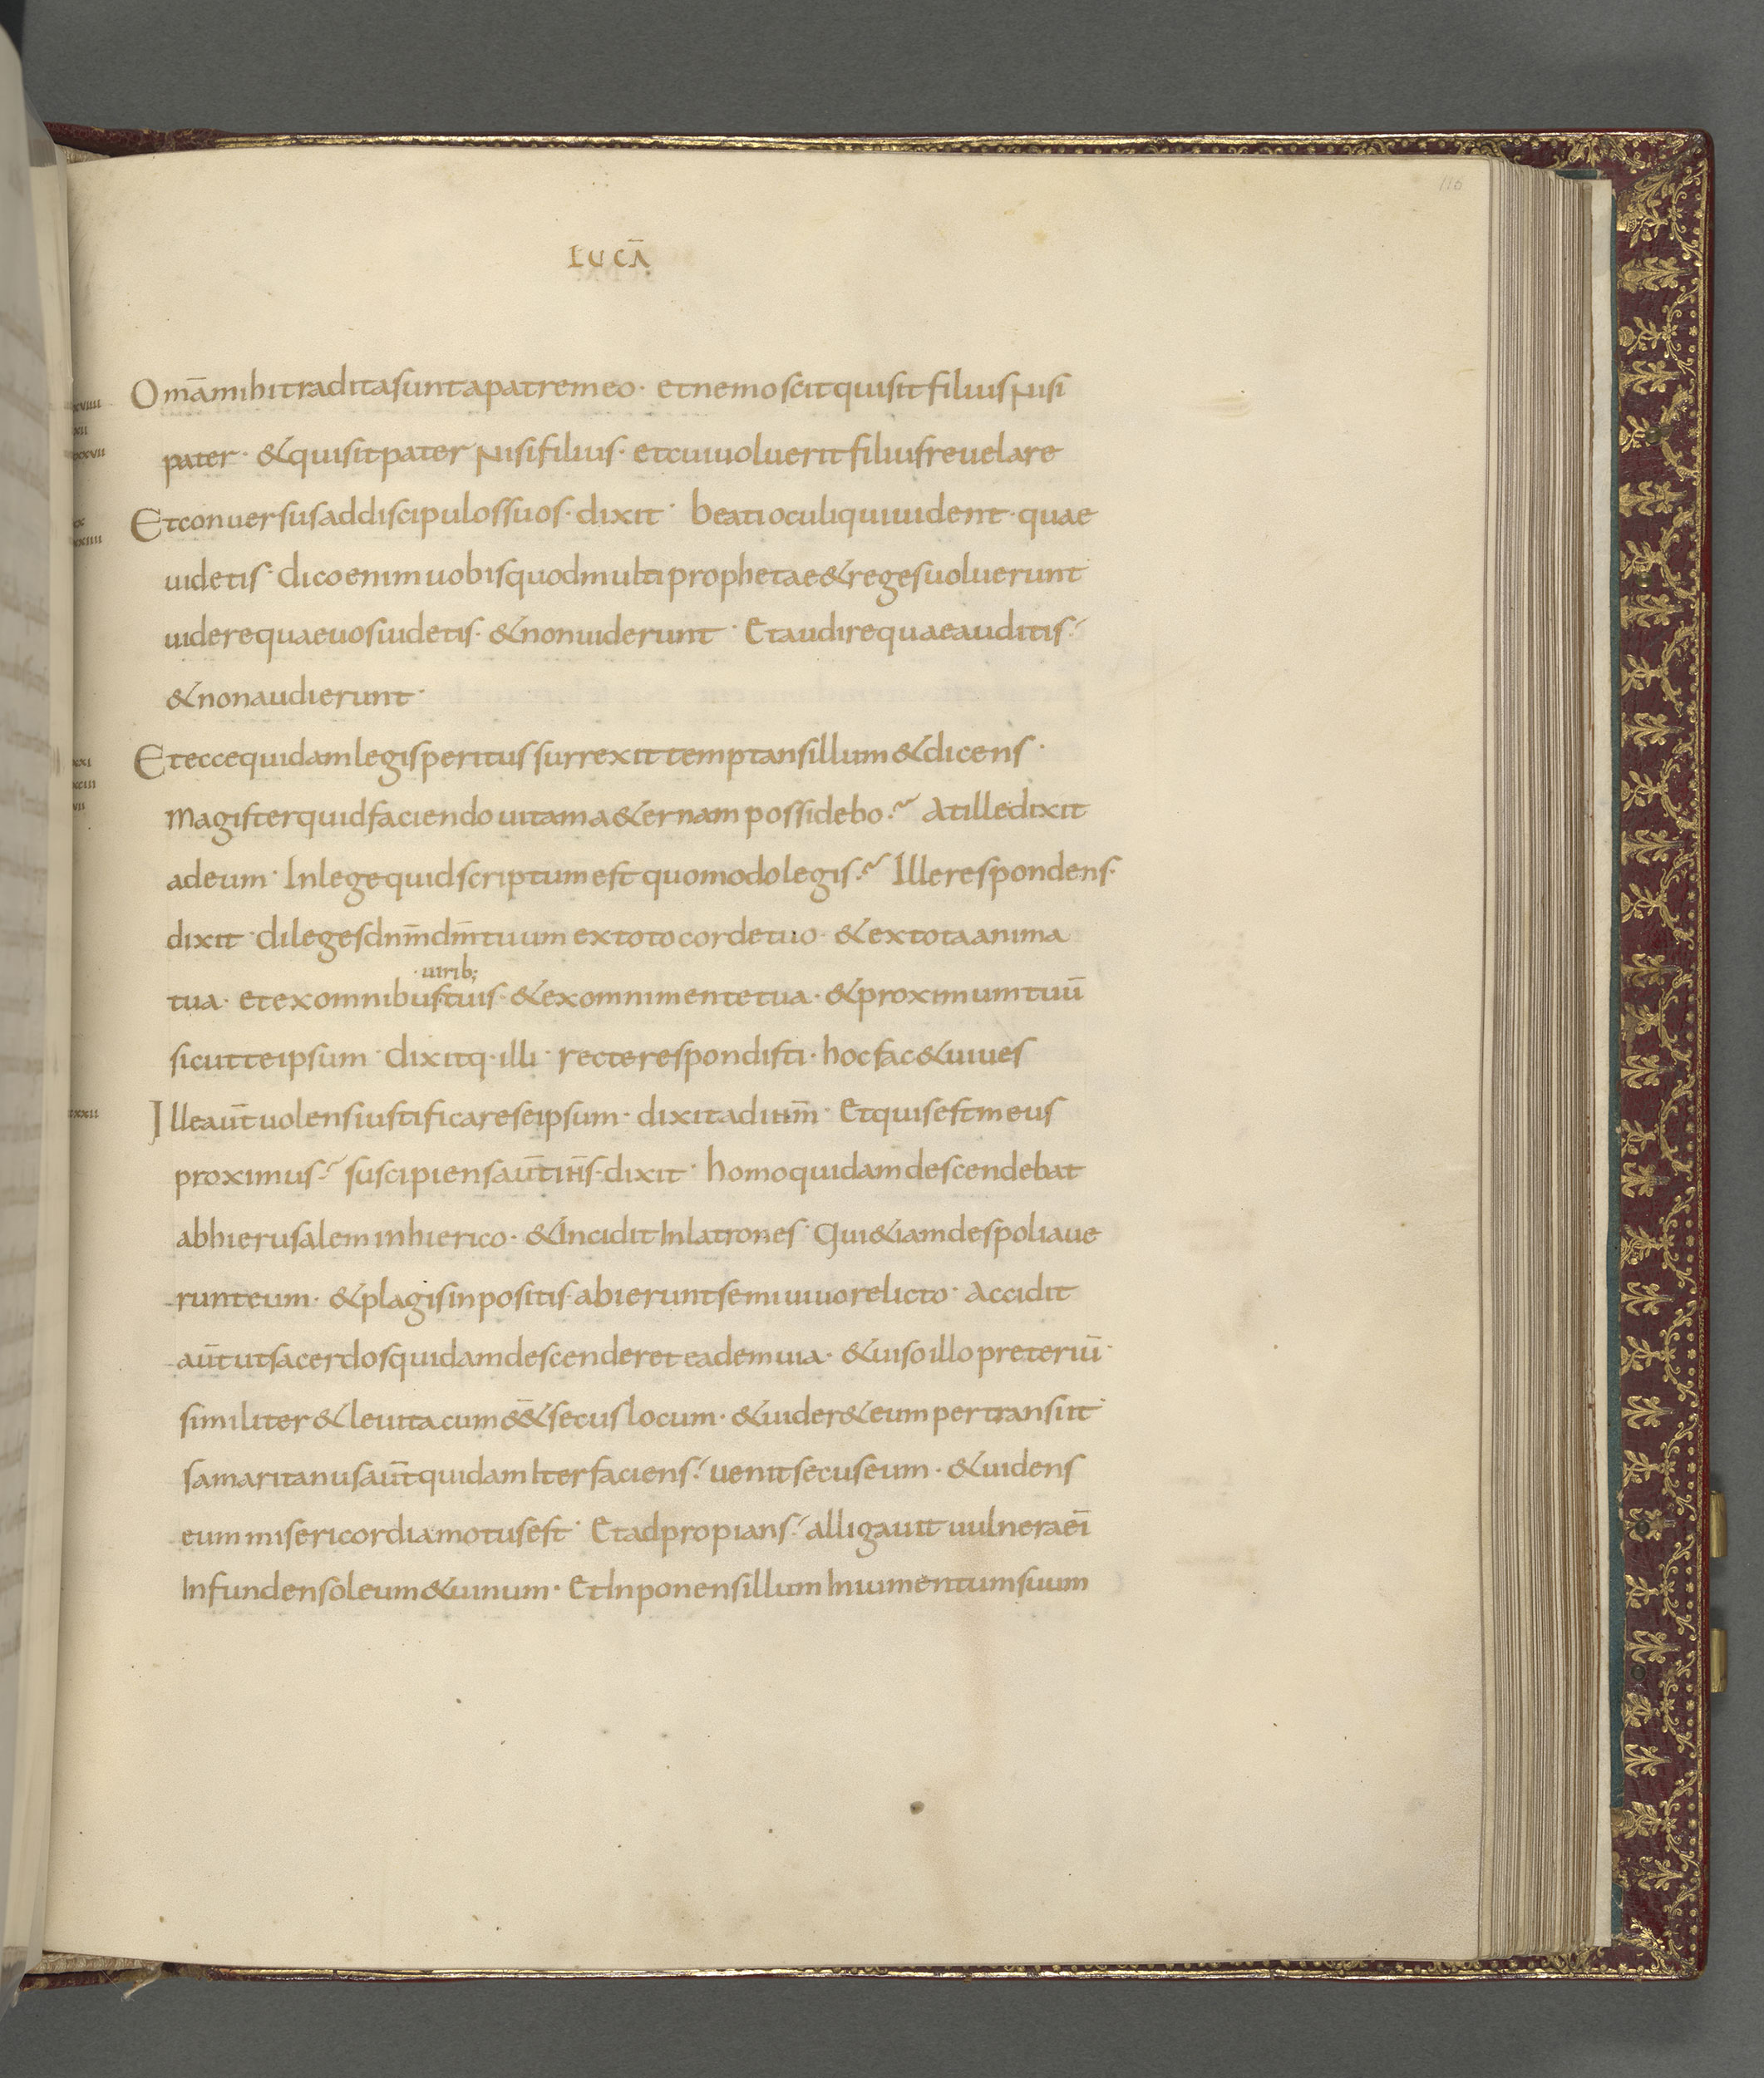 116
LUCĀ
Omā mihi tradita sunt a patre meo · et nemo scit qui sit filius Nisi
xviiii
xii
pater · & qui sit pater Nisi filius · et cui uoluerit filius reuelare
xxvii
Et conuersus ad discipulos suos · dixit · beati oculi qui uident · quae
xx
xxiiii
uidetis · dico enim uobis quod multi prophetae & reges uoluerunt
uidere quae uos uidetis · & non uiderunt · Et audire quae auditis ·
& non audierunt ·
Et ecce quidam legis peritus surrexit temptans illum & dicens ·
xxi
xciii
vii
Magister quid faciendo uitam a&ernam possidebo · At ille dixit
ad eum · In lege quid scriptum est quomodo legis · Ille respondens ·
dixit · diliges dnm̄ dm̄ tuum ex toto corde tuo · & ex tota anima
· uirib;
tua · et ex omnibus tuis · & ex omni mente tua · & proximum tuū
sicut te ipsum · dixitq · illi · recte respondisti · hoc fac & uiues
Ille aut̄ uolens iustificare se ipsum · dixit ad ihm̄ · Et quis est meus
xxii
proximus · suscipiens aut̄ ihs̄ · dixit · homo quidam descendebat
ab hierusalem in hierico · & Incidit In latrones · Qui &iam despoliaue
runt eum · & plagis inpositis · abierunt semiuiuo relicto · Accidit
aut̄ ut sacerdos quidam descenderet eadem uia · & uiso illo preteriū ·
similiter & leuita cum ēē& secus locum · & uider& eum pertransiit ·
samaritanus aut̄ quidam Iter faciens · uenit secus eum · & uidens
eum misericordia motus est · Et adpropians · alligauit uulnera eī
Infundens oleum & uinum · Et Inponens illum In iumentum suum